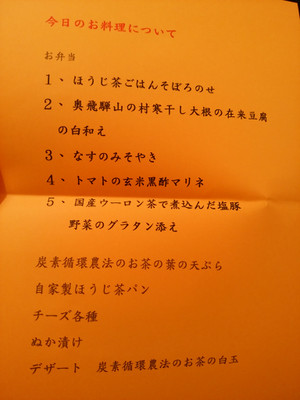 今日のお料理について
お弁当
1、ほうじ茶ごはんそぼろのせ
2、奥飛騨山の村寒干し大根の在来豆腐
の白和え
3、なすのみそやき
4、トマトの玄米黒酢マリネ
5、国産ウーロン茶で煮込んだ塩豚
野菜のグラタン添え
炭素循環農法のお茶の葉の天ぷら
自家製ほうじ茶パン
チーズ各種
ぬか漬け
デザート 炭素循環農法のお茶の白玉